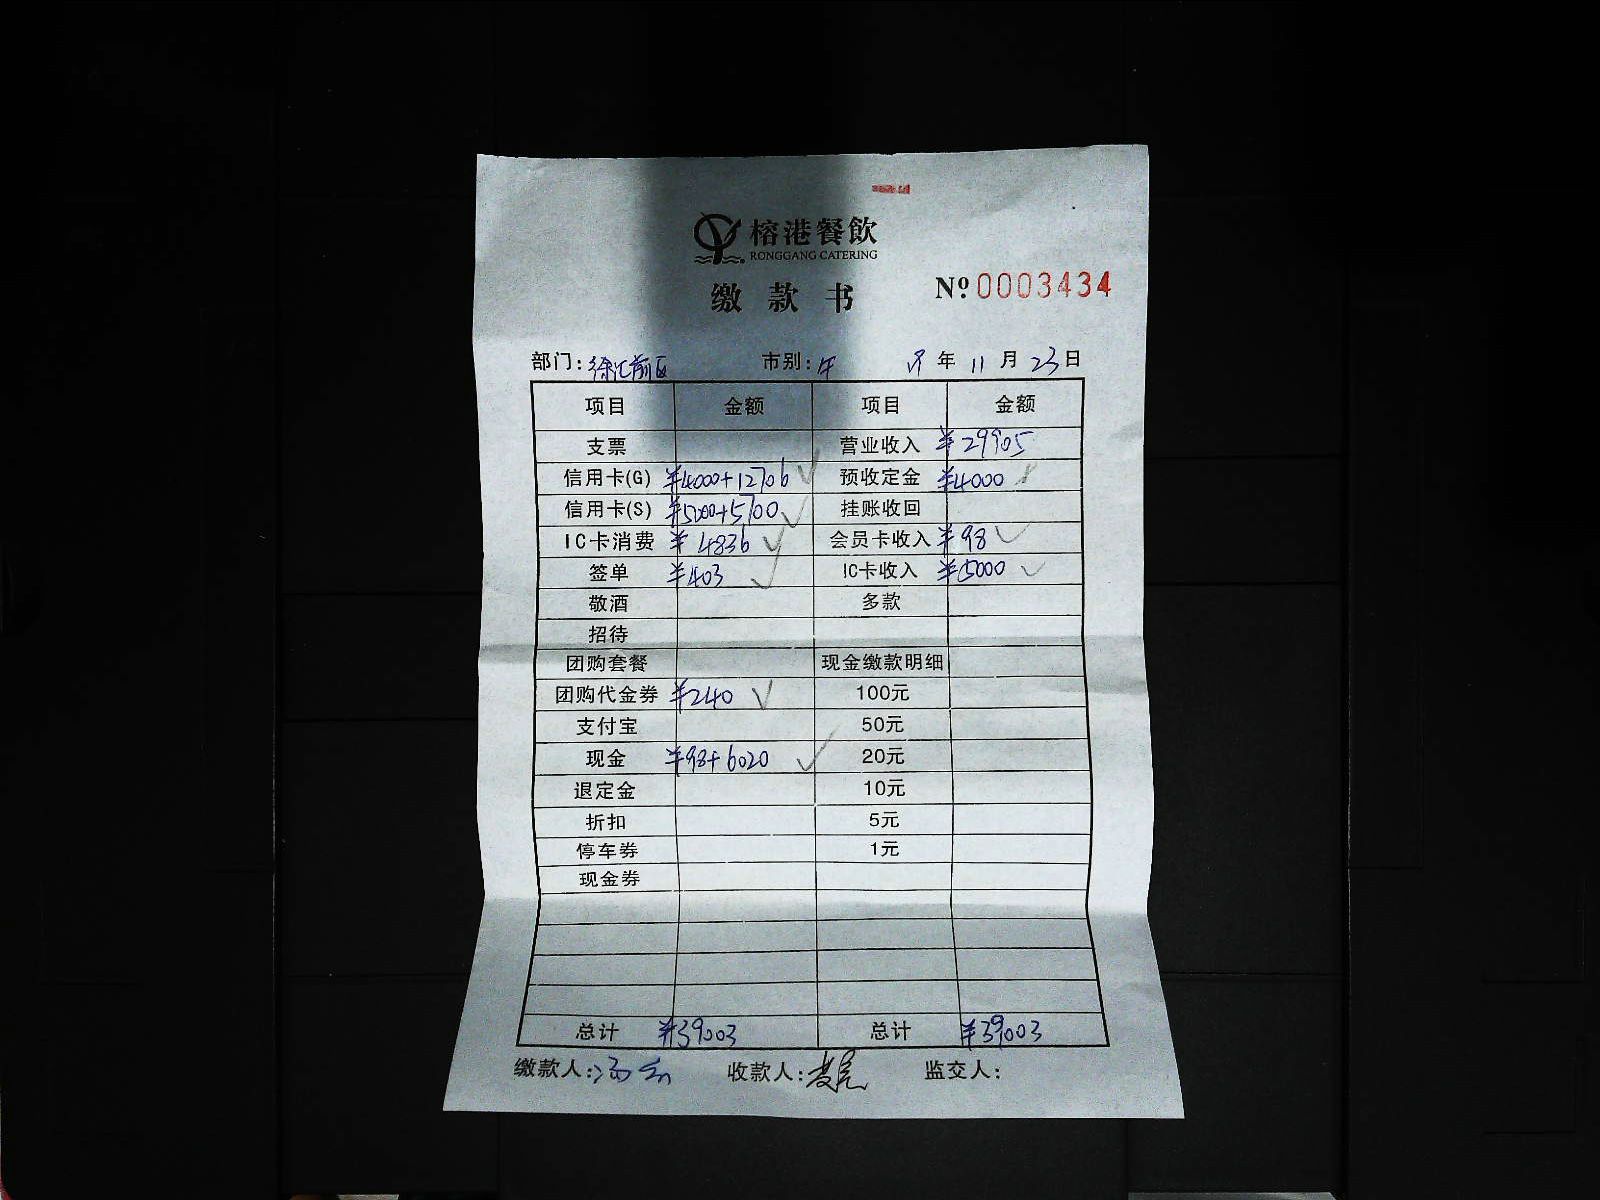 榕港餐飲
RONGGANG CATERING
缴款书 № 0003434
部门：徐汇前区 市别：午 年 11 月 23 日
项目 金额 项目 金额
支票 营业收入 ¥29905
信用卡(G) ¥4000+12706 预收定金 ¥4000
信用卡(S) ¥5000+5700 挂账收回
IC卡消费 ¥4836 会员卡收入 ¥98
签单 ¥403 IC卡收入 ¥5000
敬酒 多款
招待
团购套餐 现金缴款明细
团购代金券 ¥240 100元
支付宝 50元
现金 ¥98+6020 20元
退定金 10元
折扣 5元
停车券 1元
现金券
总计 ¥39003 总计 ¥39003
缴款人： 收款人： 监交人：